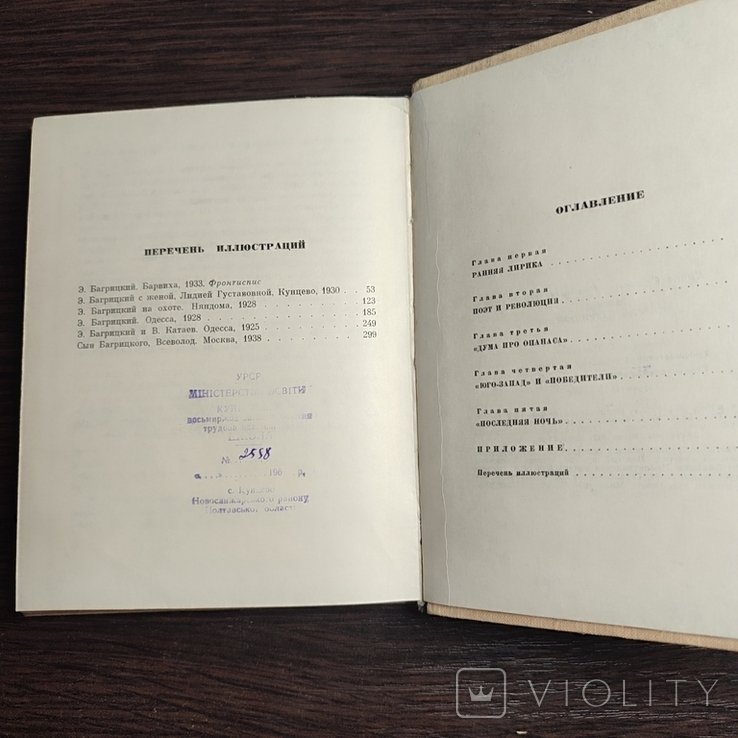 ПЕРЕЧЕНЬ ИЛЛЮСТРАЦИЙ
Э. Багрицкий. Барвиха, 1933. Фронтиспис
Э. Багрицкий с женой, Лидией Густавовной, Кунцево, 1930 . . 53
Э. Багрицкий на охоте. Няндома, 1928 . . . . . . . 123
Э. Багрицкий. Одесса, 1928 . . . . . . . . . . . 185
Э. Багрицкий и В. Катаев. Одесса, 1925 . . . . . . . 249
Сын Багрицкого, Всеволод. Москва, 1938 . . . . . . . 299
УРСР
МІНІСТЕРСТВО ОСВІТИ
№ 2558
196 р.
Новосанжарського району
Полтавської області
ОГЛАВЛЕНИЕ
Глава первая
РАННЯЯ ЛИРИКА
Глава вторая
ПОЭТ И РЕВОЛЮЦИЯ
Глава третья
«ДУМА ПРО ОПАНАСА»
Глава четвертая
«ЮГО-ЗАПАД» И «ПОБЕДИТЕЛИ»
Глава пятая
«ПОСЛЕДНЯЯ НОЧЬ»
ПРИЛОЖЕНИЕ
Перечень иллюстраций
VIOLITY